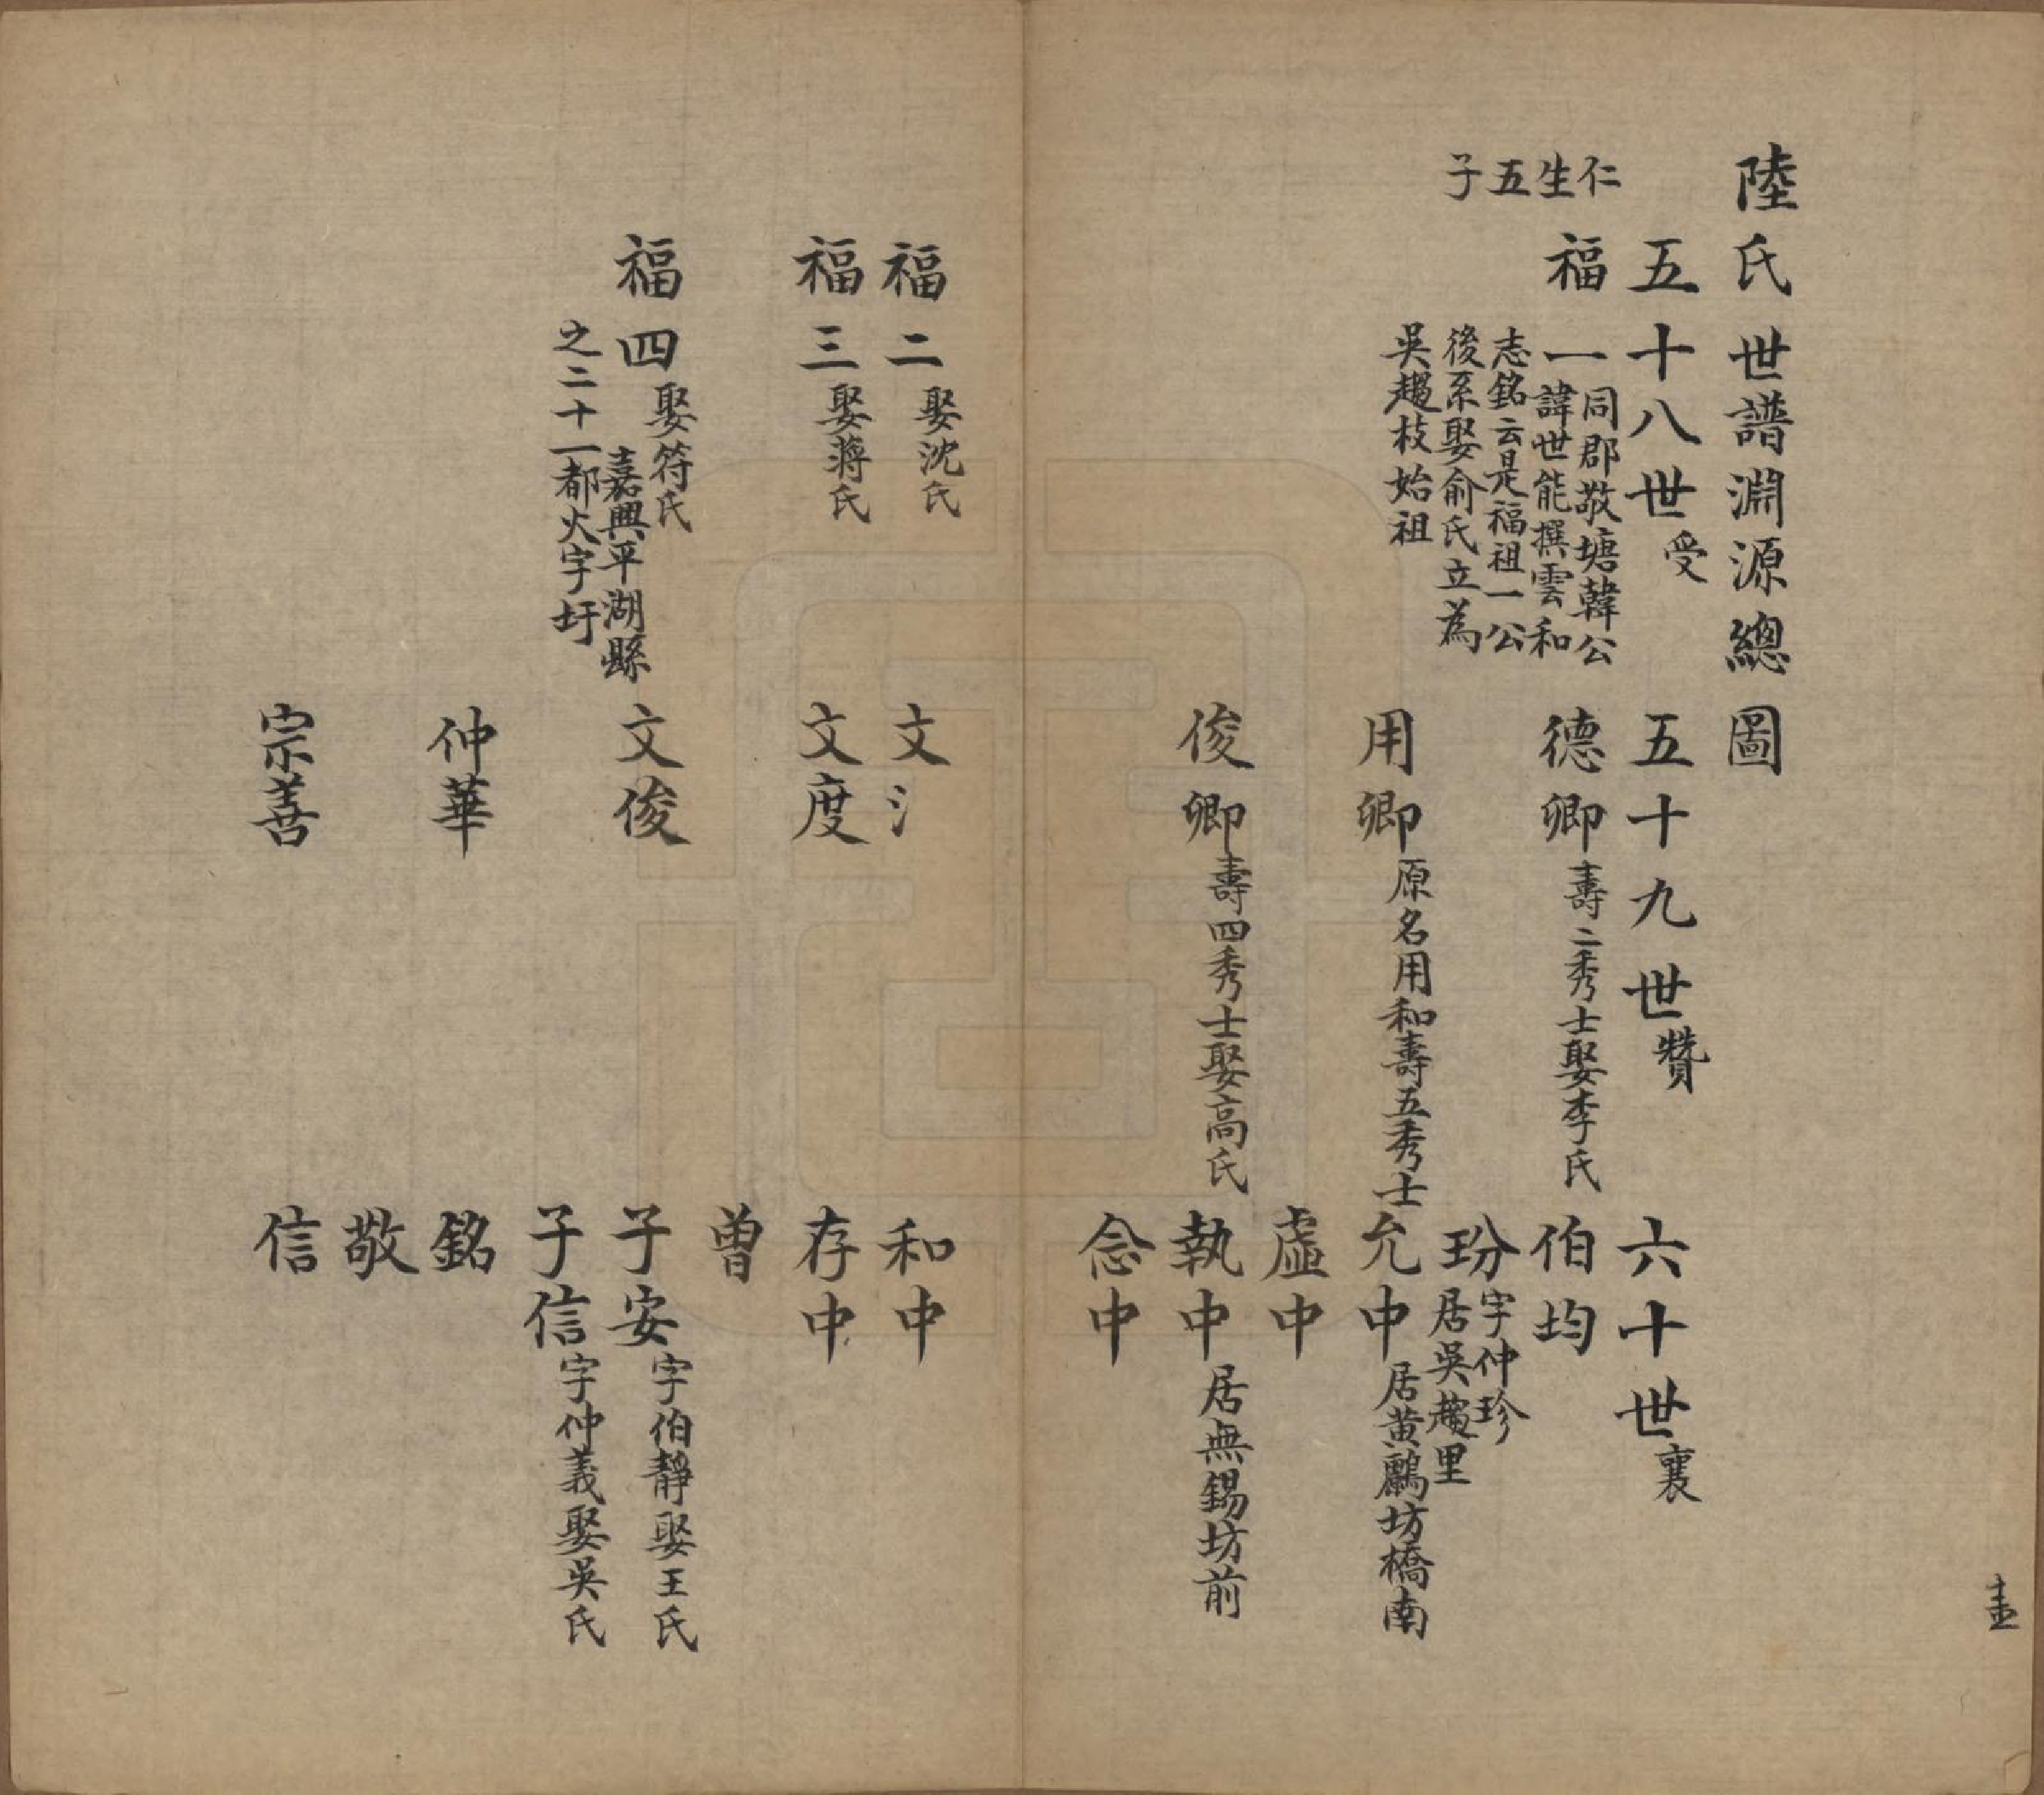 陸氏世譜淵源總圖
五十八世受
五十九世贊
六十世襄
仁生五子
福一
同郡敬塘韓公
諱世能撰雲和
志銘云是福祖一公
後系娶俞氏立為
吳趨枝始祖
德卿壽二秀士娶李氏
伯均
玢字仲珍
居吳趨里
用卿原名用和壽五秀士
允中居黃鸝坊橋南
虛中
俊卿壽四秀士娶高氏
執中居無錫坊前
念中
福二娶沈氏
文氵
和中
福三娶蔣氏
文度
存中
曾
福四娶符氏
嘉興平湖縣
之二十一都火字圩
文俊
子安字伯靜娶王氏
子信字仲義娶吳氏
仲華
銘
敬
宗善
信